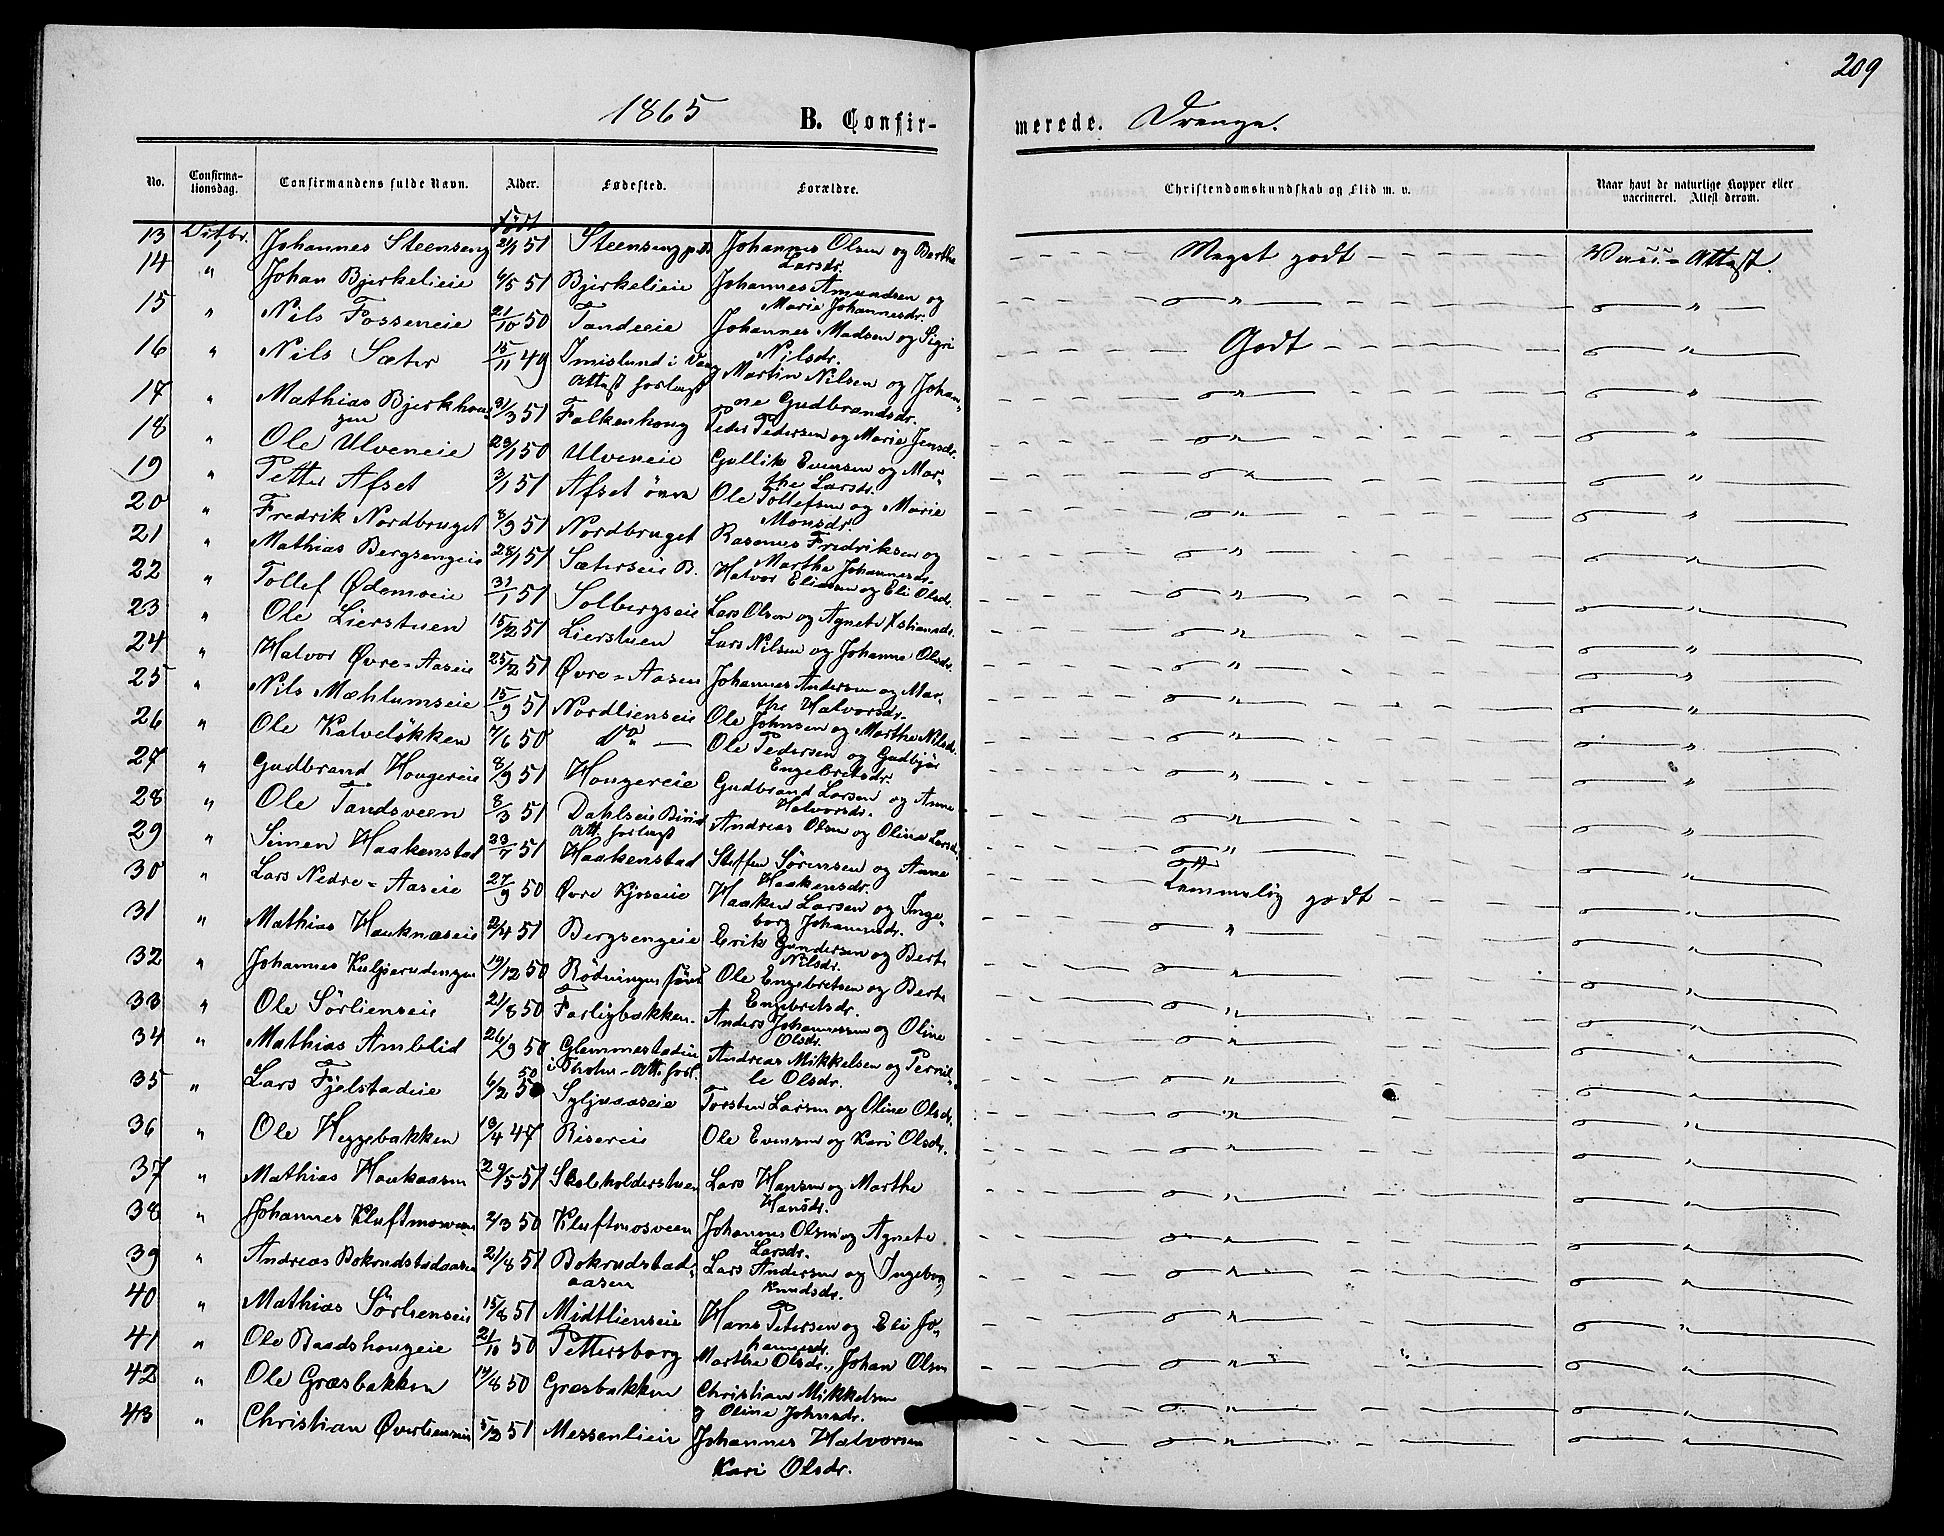 209
1865 B. Confirmerede. Drenge.
No. Confirmationsdag. Confirmandens fulde Navn. Alder. Fødested. Forældre. Christendomskundskab og Flid m. v. Naar havt de naturlige Kopper eller vaccineret. Attest derom.
født
13 Johannes Steenseng 51 Steenseng Johannes Olsen og Berthe Larsdr. Meget godt Vacc. Attest.
14 " Johan Bjerkelieie 6/5 51 Bjerkelieie Johannes Amundsen og Marie Johannesdr. " "
15 " Nils Fosseneie 21/10 50 Tandeeie Johannes Madsen og Sigri Nilsdr. Godt "
16 " Nils Sæter 15/11 49 Imislund i Vang Attest forlangt Martin Nilsen og Johanne Gudbrandsdr. " "
17 " Mathias Bjerkhougen 31/3 51 Falkenhoug Peder Pedersen og Marie Jensdr. " "
18 " Ole Ulveneie 29/1 50 Ulveneie Gullik Evensen og Marthe Larsdr. " "
19 " Petter Afset 3/1 51 Afset övre Ole Tollefsen og Marie Monsdr. " "
20 " Fredrik Nordbruget 8/9 51 Nordbruget Rasmus Fredriksen og Marthe Johannesdr. " "
21 " Mathias Bergsengeie 28/1 51 Sæterseie B. Halvor Eliasen og Eli Olsdr. " "
22 " Tollef Ødemoeie 31/1 51 Solbergseie Lars Olsen og Agnete Xstiansdr. " "
23 " Ole Lierstuen 15/2 51 Lierstuen Lars Nilsen og Johanne Olsdr. " "
24 " Halvor Øvre-Aaseie 25/2 51 Øvre-Aasen Johannes Andersen og Marthe Halvorsdr. " "
25 " Nils Mæhlumseie 15/9 51 Nordlienseie Ole Johnsen og Marthe Nilsdr. " "
26 " Ole Kalveløkken 7/6 50 Do Ole Pedersen og Gudbjør Engebretsdr. " "
27 " Gudbrand Hougereie 8/9 51 Hougereie Gudbrand Larsen og Anne Halvorsdr. " "
28 " Ole Tandsveen 8/3 51 Dahlseie Birid Att. forlangt Andreas Olsen og Oline Larsdr. " "
29 " Simen Haakenstad 23/7 51 Haakenstad Steffen Sørensen og Anne Haakensdr. " "
30 " Lars Nedre-Aaseie 27/9 50 Øvre Kjoseie Haaken Larsen og Ingeborg Johannesdr. Temmelig godt "
31 " Mathias Hauknæseie 2/4 51 Bergsengeie Erik Gundersen og Berte Nilsdr. " "
32 " Johannes Kulperudengen 19/12 50 Rödningen Ole Engebretsen og Berte Engebretsdr. " "
33 " Ole Sörlienseie 21/8 50 Farligbakken Anders Johannessen og Oline Olsdr. " "
34 " Mathias Amblid 26/9 50 Glemmestadeie i Thoten - Att. forl. Andreas Mikkelsen og Pernille Olsdr. " "
35 " Lars Fjelstadeie 6/2 50 Syljuaaseie Torsten Larsen og Oline Olsdr. " "
36 " Ole Heggebakken 19/4 47 Risereie Ole Evensen og Kari Olsdr. " "
37 " Mathias Haukaasen 29/5 51 Skoleholderstuen Lars Hansen og Marthe Hansdr. " "
38 " Johannes Kluftmosveen 2/3 50 Kluftmosveen Johannes Olsen og Agnete Larsdr. " "
39 " Andreas Bokrudstadaasen 21/8 51 Bokrudstadaasen Lars Andersen og Ingeborg Knudsdr. " "
40 " Mathias Sörlienseie 15/8 51 Midtlienseie Hans Petersen og Eli Johannesdr. " "
41 " Ole Baadshougeie 2/10 50 Pettersborg Marthe Olsdr., Johan Olsen " "
42 " Ole Græsbakken 14/8 50 Græsbakken Christian Mikkelsen og Oline Johnsdr. " "
43 " Christian Øverlienseie 5/2 51 Messenlieie Johannes Halvorsen Kari Olsdr. " "